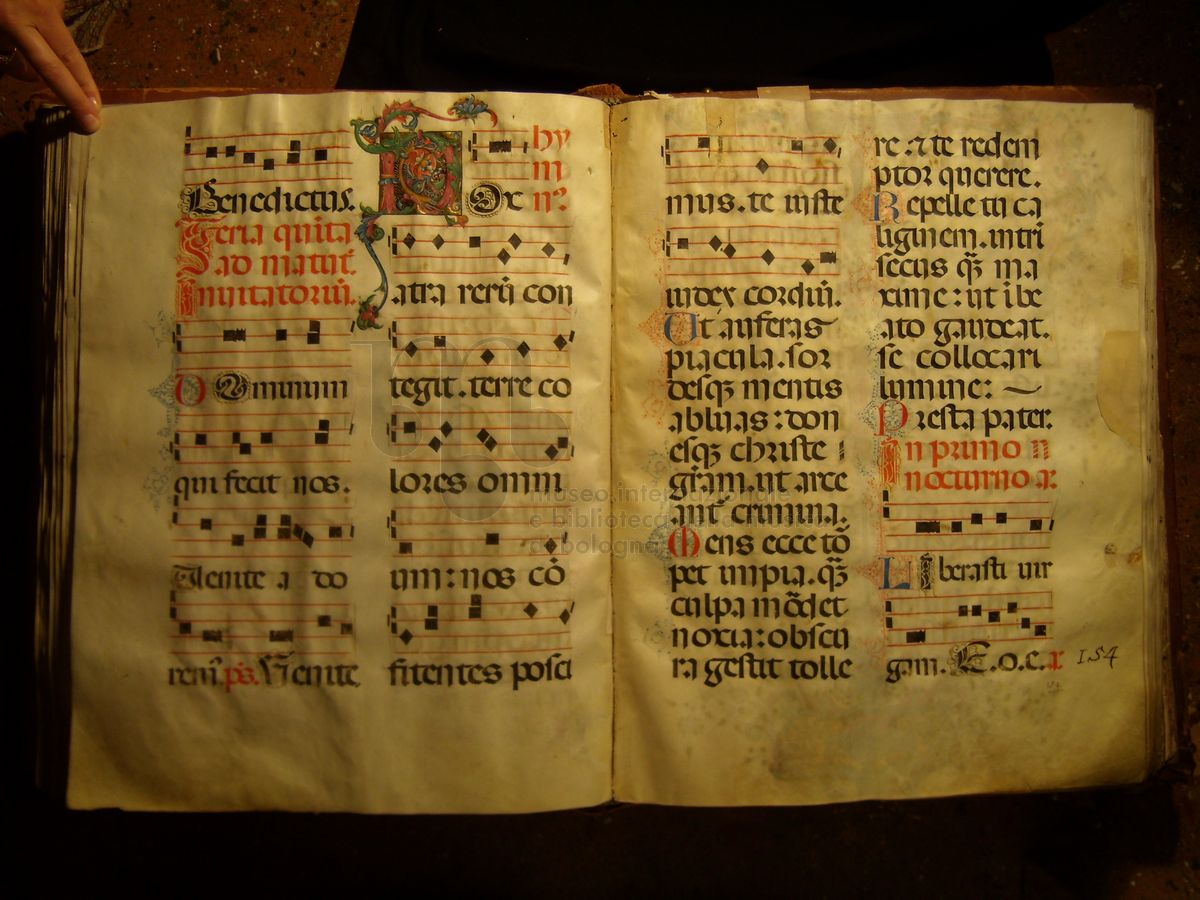 Benedictus.
Feria quīta
ad matut̄.
Inuitatoriū.
DOminum
qui fecit nos.
Uenite a do
rem̄. ps. Uenite
hy
m
nꝰ.
NOx
atra rerū con
tegit. terre co
lores omni
um: nos cō
fitentes posci
mus. te iuste
iudex cordiū.
Ut auferas
piacula. sor
desqꝫ mentis
abluas: don
esqꝫ christe
grām. ut arce
ant̄ crimina.
Mens ecce tō
pet impia. qꝫ̄
culpa mōdet
noxia: obscu
ra gestit tolle
re: ⁊ te redem
ptor querere.
Repelle tu ca
liginem. intri
secus qꝫ̄ ma
xime: ut ī be
ato gaudeat.
se collocari
lumine:
Presta pater.
In primo n
nocturno a.
LIberasti uir
gam. E.o.e.
154
museo internazionale
e biblioteca della musica
di bologna